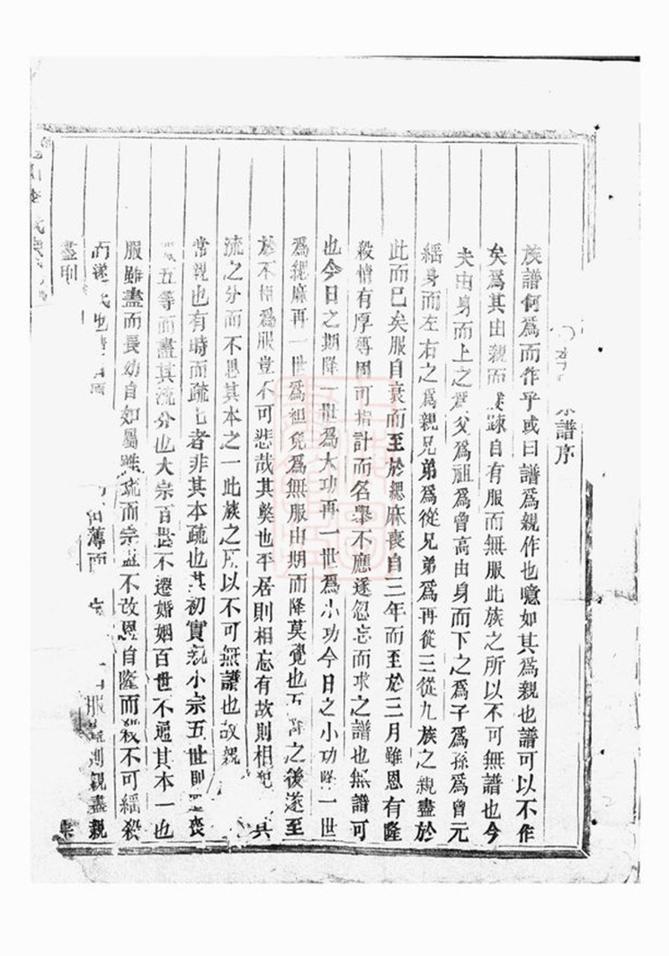 譜序
族譜何爲而作乎或曰譜爲親作也噫如其爲親也譜可以不作
矣爲其由親而疎自有服而無服此族之所以不可無譜也今
夫由身而上之爲父爲祖爲曾高由身而下之爲子爲孫爲曾元
緦身而左右之爲親兄弟爲從兄弟爲再從三從九族之親盡於
此而已矣服自衰而至於緦麻喪自三年而至於三月雖恩有隆
殺情有厚薄固可指計而名舉不應遂忽忘而求之譜也無譜可
也今日之期降一世爲大功再一世爲小功今日之小功降一世
爲緦麻再一世爲袒免爲無服由期而降莫覺也五降之後遂至
於不相爲服豈不可悲哉其獘也平居則相忘有故則相犯其
流之分而不思其本之一此族之所以不可無譜也故親
常親也有時而疏者非其本疏也其初實親小宗五世則喪
五等而盡其流分也大宗百世不遷婚姻百世不通其本一也
服雖盡而長幼自如屬雖疏而宗盟不改恩自隆而殺不可緦殺
而遂也薄而服則親盡親
盡則